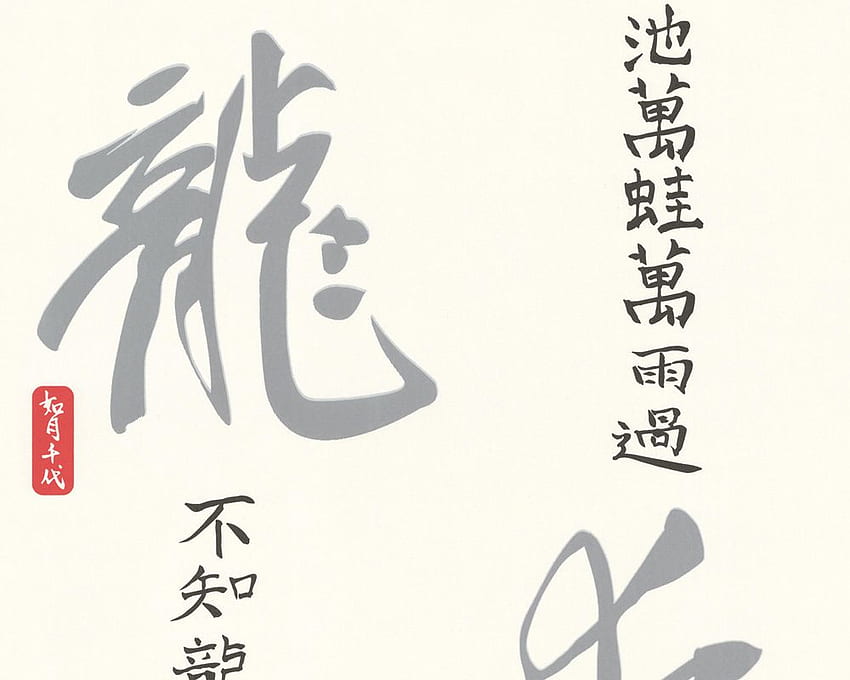 池萬蛙萬雨過
龍
不知龍
如月千代